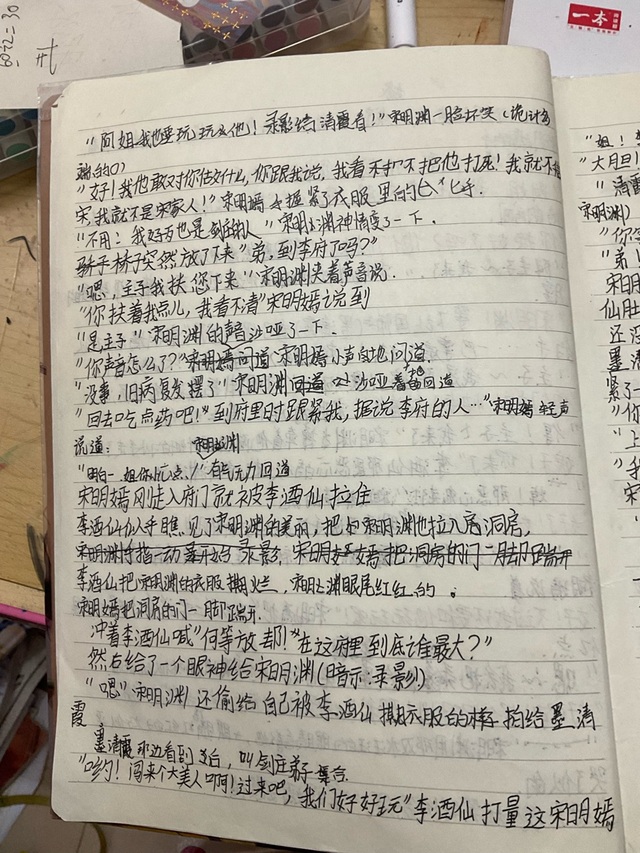 6072=30
一本
"阿姐我也要玩玩他！录影给清霞看！"宋明渊一脸坏笑（诡计多
端的0）
"好！我他敢对你做什么，你跟我说，我看不护不把他打死！我就不姓
宋，我就不是宋家人！"宋明嫣握紧了衣服里的匕匕手.
"不用！我好歹也是剑修的人"宋明渊神情变了一下.
轿子轿子突然放了下来"弟，到李府了吗？"
"嗯，主子我扶您下来"宋明渊夹着声音说.
"你扶着我点儿，我看不清"宋明嫣说到
"是主子"宋明渊的声音沙哑了一下.
"你声音怎么了？"宋明嫣问道 宋明嫣小声的地问道.
"没事，旧病复发摆了"宋明渊回道 沙哑着地回道
"回去吃点药吧！"到府里时跟紧我，据说李府的人…"宋明嫣轻声
说道：
宋明渊
"明白-姐你忙点！"有气无力回道
宋明嫣刚走入府门就被李酒仙拉住
李酒仙瞧见了宋明渊的美丽，把宋明渊他拉入房洞房，
宋明渊将指一动 录影，宋明嫣把洞房的门一脚踹开
李酒仙把宋明渊的衣服撕烂，宋明渊眼尾红红的。
宋明嫣把洞房的门一脚踹开.
冲着李酒仙喊"何等放却！""在这府里到底谁最大？"
然后给了一个眼神给宋明渊(暗示：录影)
"嗯"宋明渊还偷给自己被李酒仙撕衣服的样拍给墨清
霞
墨清霞那边看到后，叫剑庄弟子集合
"哟！闯来个大美人啊！过来吧，我们好好玩"李酒仙打量这宋明嫣
"姐！
"大胆！
"清霞
宋明渊)
"你
"弟！
宋明
仙肚
还没
墨清
紧了一
"你
"上
"我